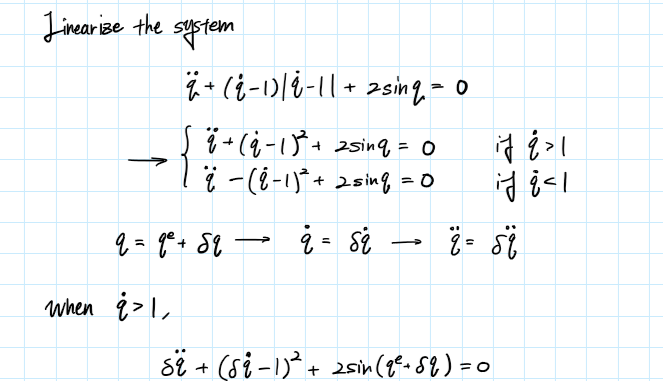 Linearize the system
q̈ + (q̇-1)|q̇-1| + 2sinq = 0
→ { q̈ + (q̇-1)² + 2sinq = 0 if q̇ > 1
q̈ - (q̇-1)² + 2sinq = 0 if q̇ < 1
q = qᵉ + δq → q̇ = δq̇ → q̈ = δq̈
When q̇ > 1,
δq̈ + (δq̇-1)² + 2sin(qᵉ+δq) = 0